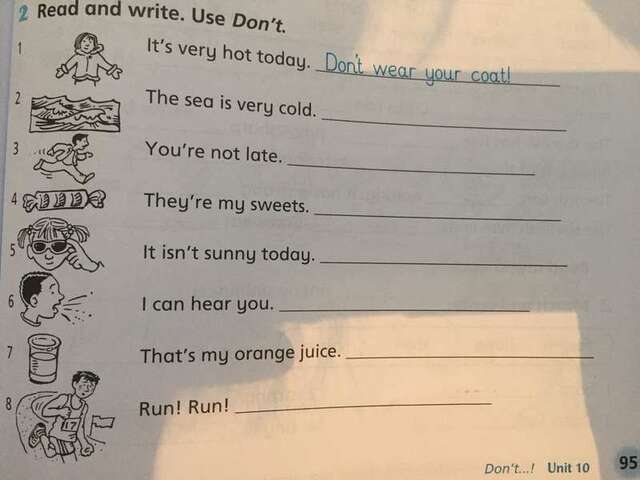 2 Read and write. Use Don't.
1 It's very hot today. Don't wear your coat!
2 The sea is very cold.
3 You're not late.
4 They're my sweets.
5 It isn't sunny today.
6 I can hear you.
7 That's my orange juice.
17
8 Run! Run!
Don't...! Unit 10 95